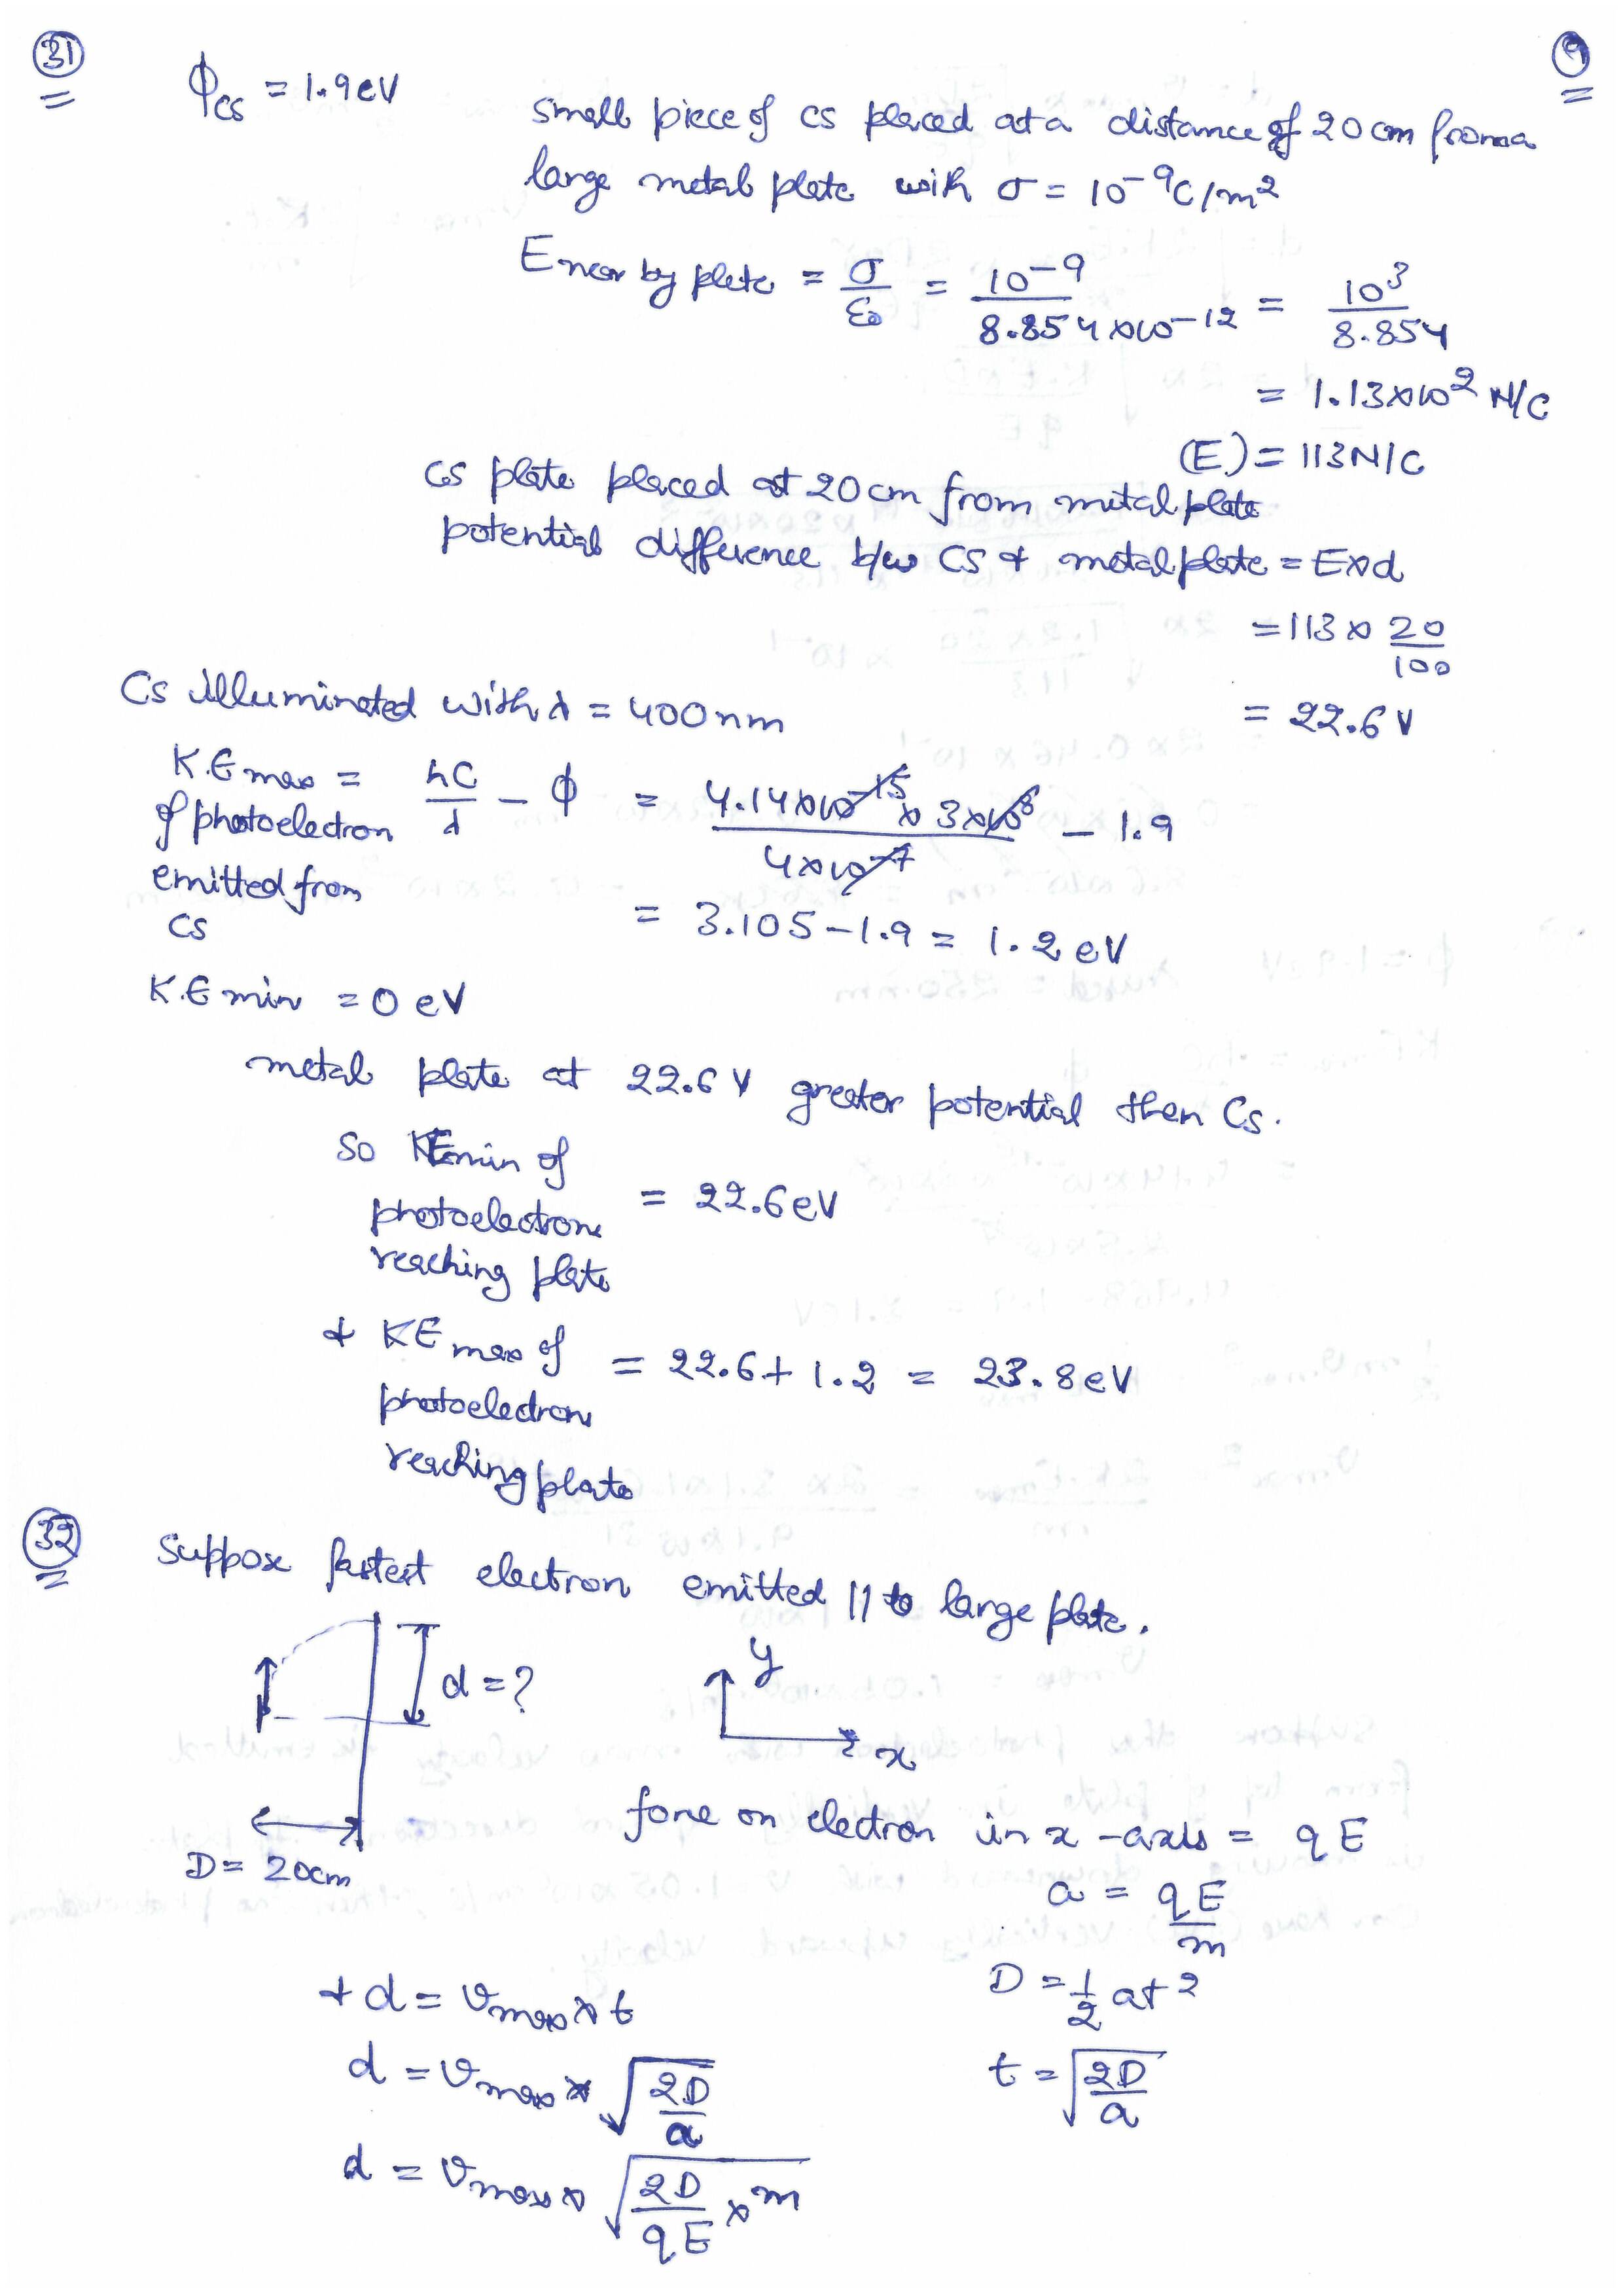 31
9
ϕCs = 1.9 eV
small piece of Cs placed at a distance of 20 cm from a
large metal plate with σ = 10⁻⁹ C/m²
E near by plate = σ/ε₀ = 10⁻⁹/8.854×10⁻¹² = 10³/8.854
= 1.13×10² N/C
(E) = 113 N/C
Cs plate placed at 20 cm from metal plate
potential difference b/w Cs & metal plate = E×d
= 113 × 20/100
= 22.6 V
Cs illuminated with λ = 400 nm
K.E max of photoelectron emitted from Cs = hC/λ − ϕ = 4.14×10⁻¹⁵ × 3×10⁸/4×10⁻⁷ − 1.9
= 3.105 − 1.9 = 1.2 eV
K.E min = 0 eV
metal plate at 22.6 V greater potential then Cs.
So KEmin of
photoelectrons = 22.6 eV
reaching plate
& KE max of = 22.6 + 1.2 = 23.8 eV
photoelectrons
reaching plate
32
Suppose fastest electron emitted || to large plate.
d = ?
y
x
D = 20cm
force on electron in x-axis = qE
a = qE/m
D = 1/2 at²
& d = vmax × t
t = √2D/a
d = vmax × √2D/a
d = vmax × √2D/qE × m